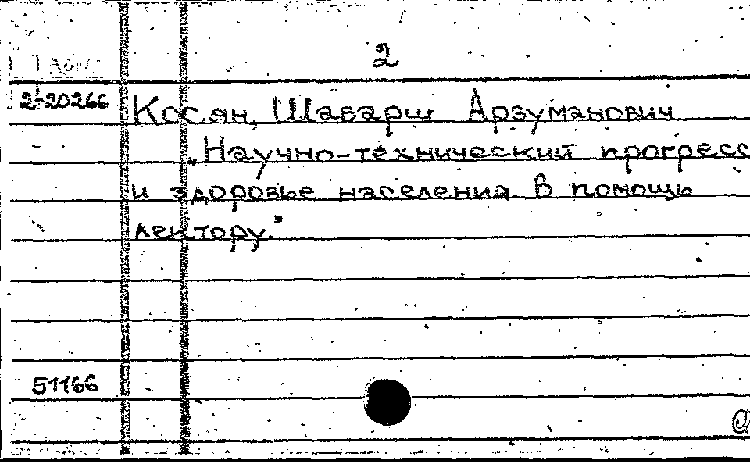 2
2-20266
Косян, Шаварш Арзуманович
„Научно-технический прогресс
и здоровье населения В помощь
лектору."
51166